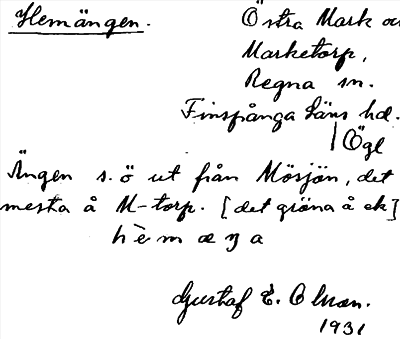 Hemängen.
Östra Mark oc
Marketorp,
Regna sn.
Finspånga läns hd.
Ögl
Ängen s.ö ut från Mösjön, det
mesta å M-torp. [det gröna å ek]
hèmæŋa
Gustaf E.
1931